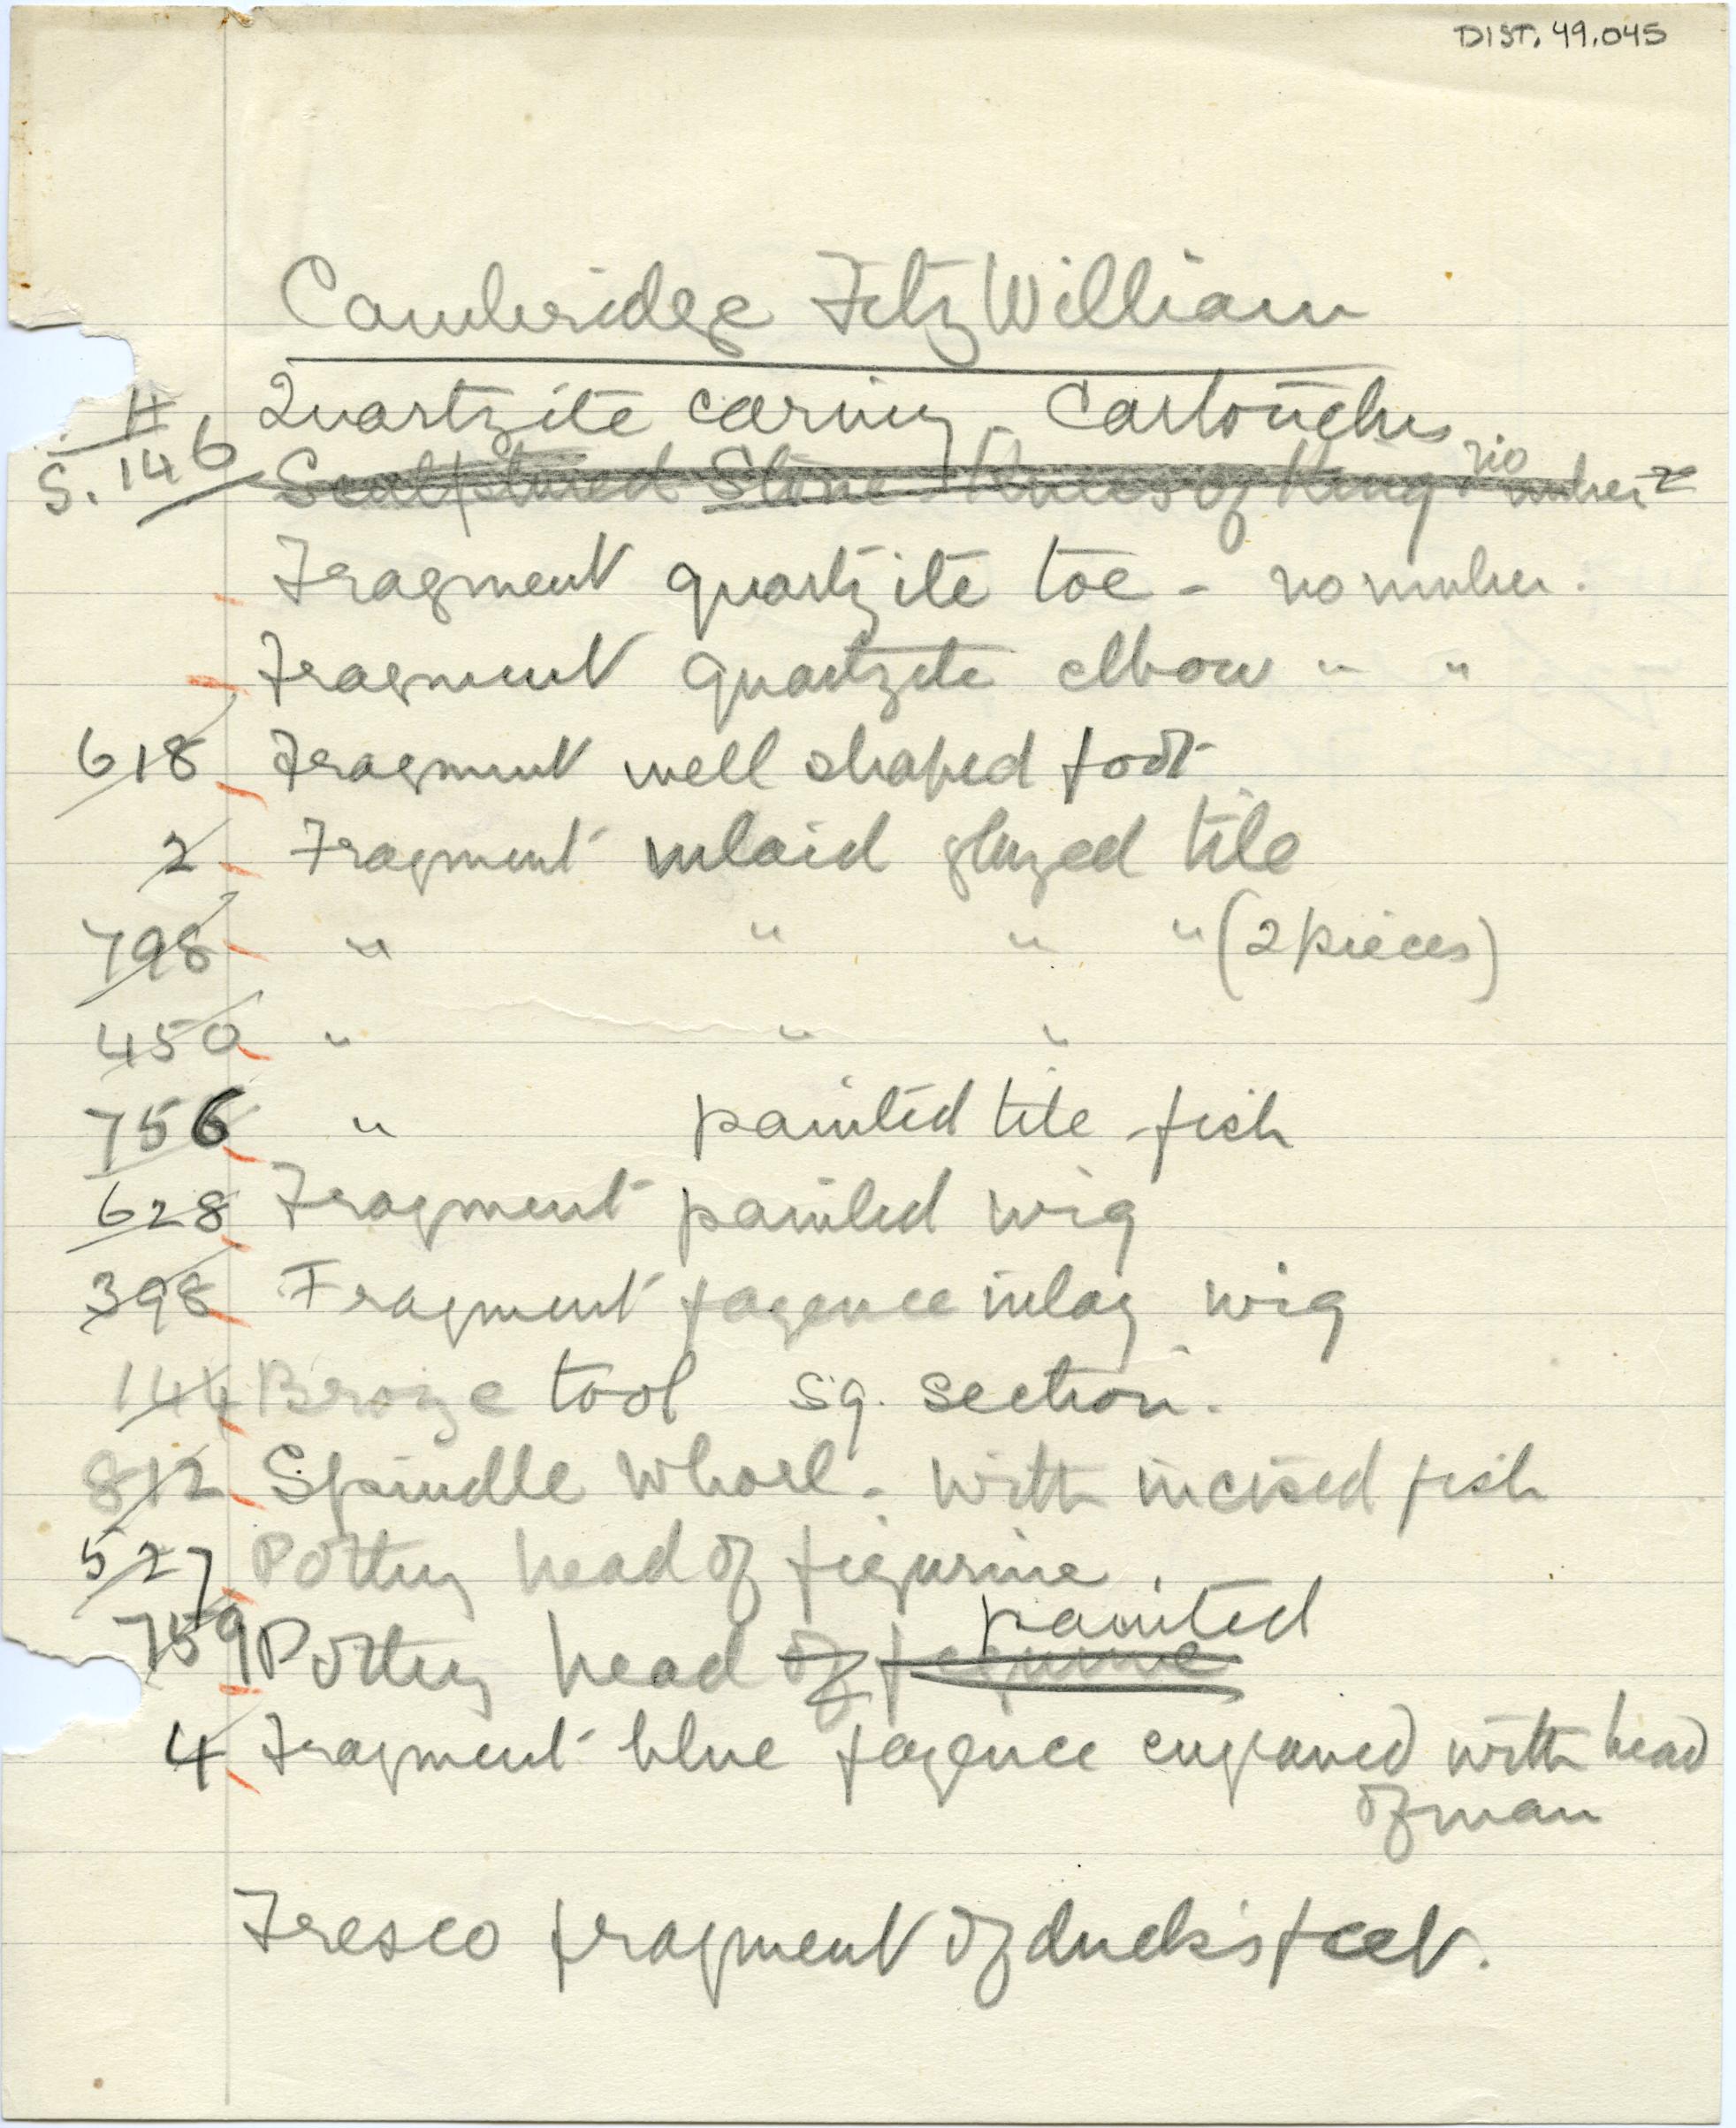 DIST. 49.045
Cambridge FitzWilliam
H Quartzite carving - Cartouches
S. 146 Sculptured Stone - Knees of King no number
Fragment quartzite toe - no number.
Fragment quartzite elbow " "
618 Fragment well shaped foot
2 Fragment inlaid glazed tile
798 " " " " (2 pieces)
450 " " "
756 " painted tile fish
628 Fragment painted wig
398 Fragment fayence inlay wig
144 Bronze tool sq. section.
812 Spindle whorl - with incised fish
527 Pottery head of figurine.
painted
759 Pottery head of figurine
4 Fragment blue fayence engraved with head
of man
Fresco fragment of duck's feet.